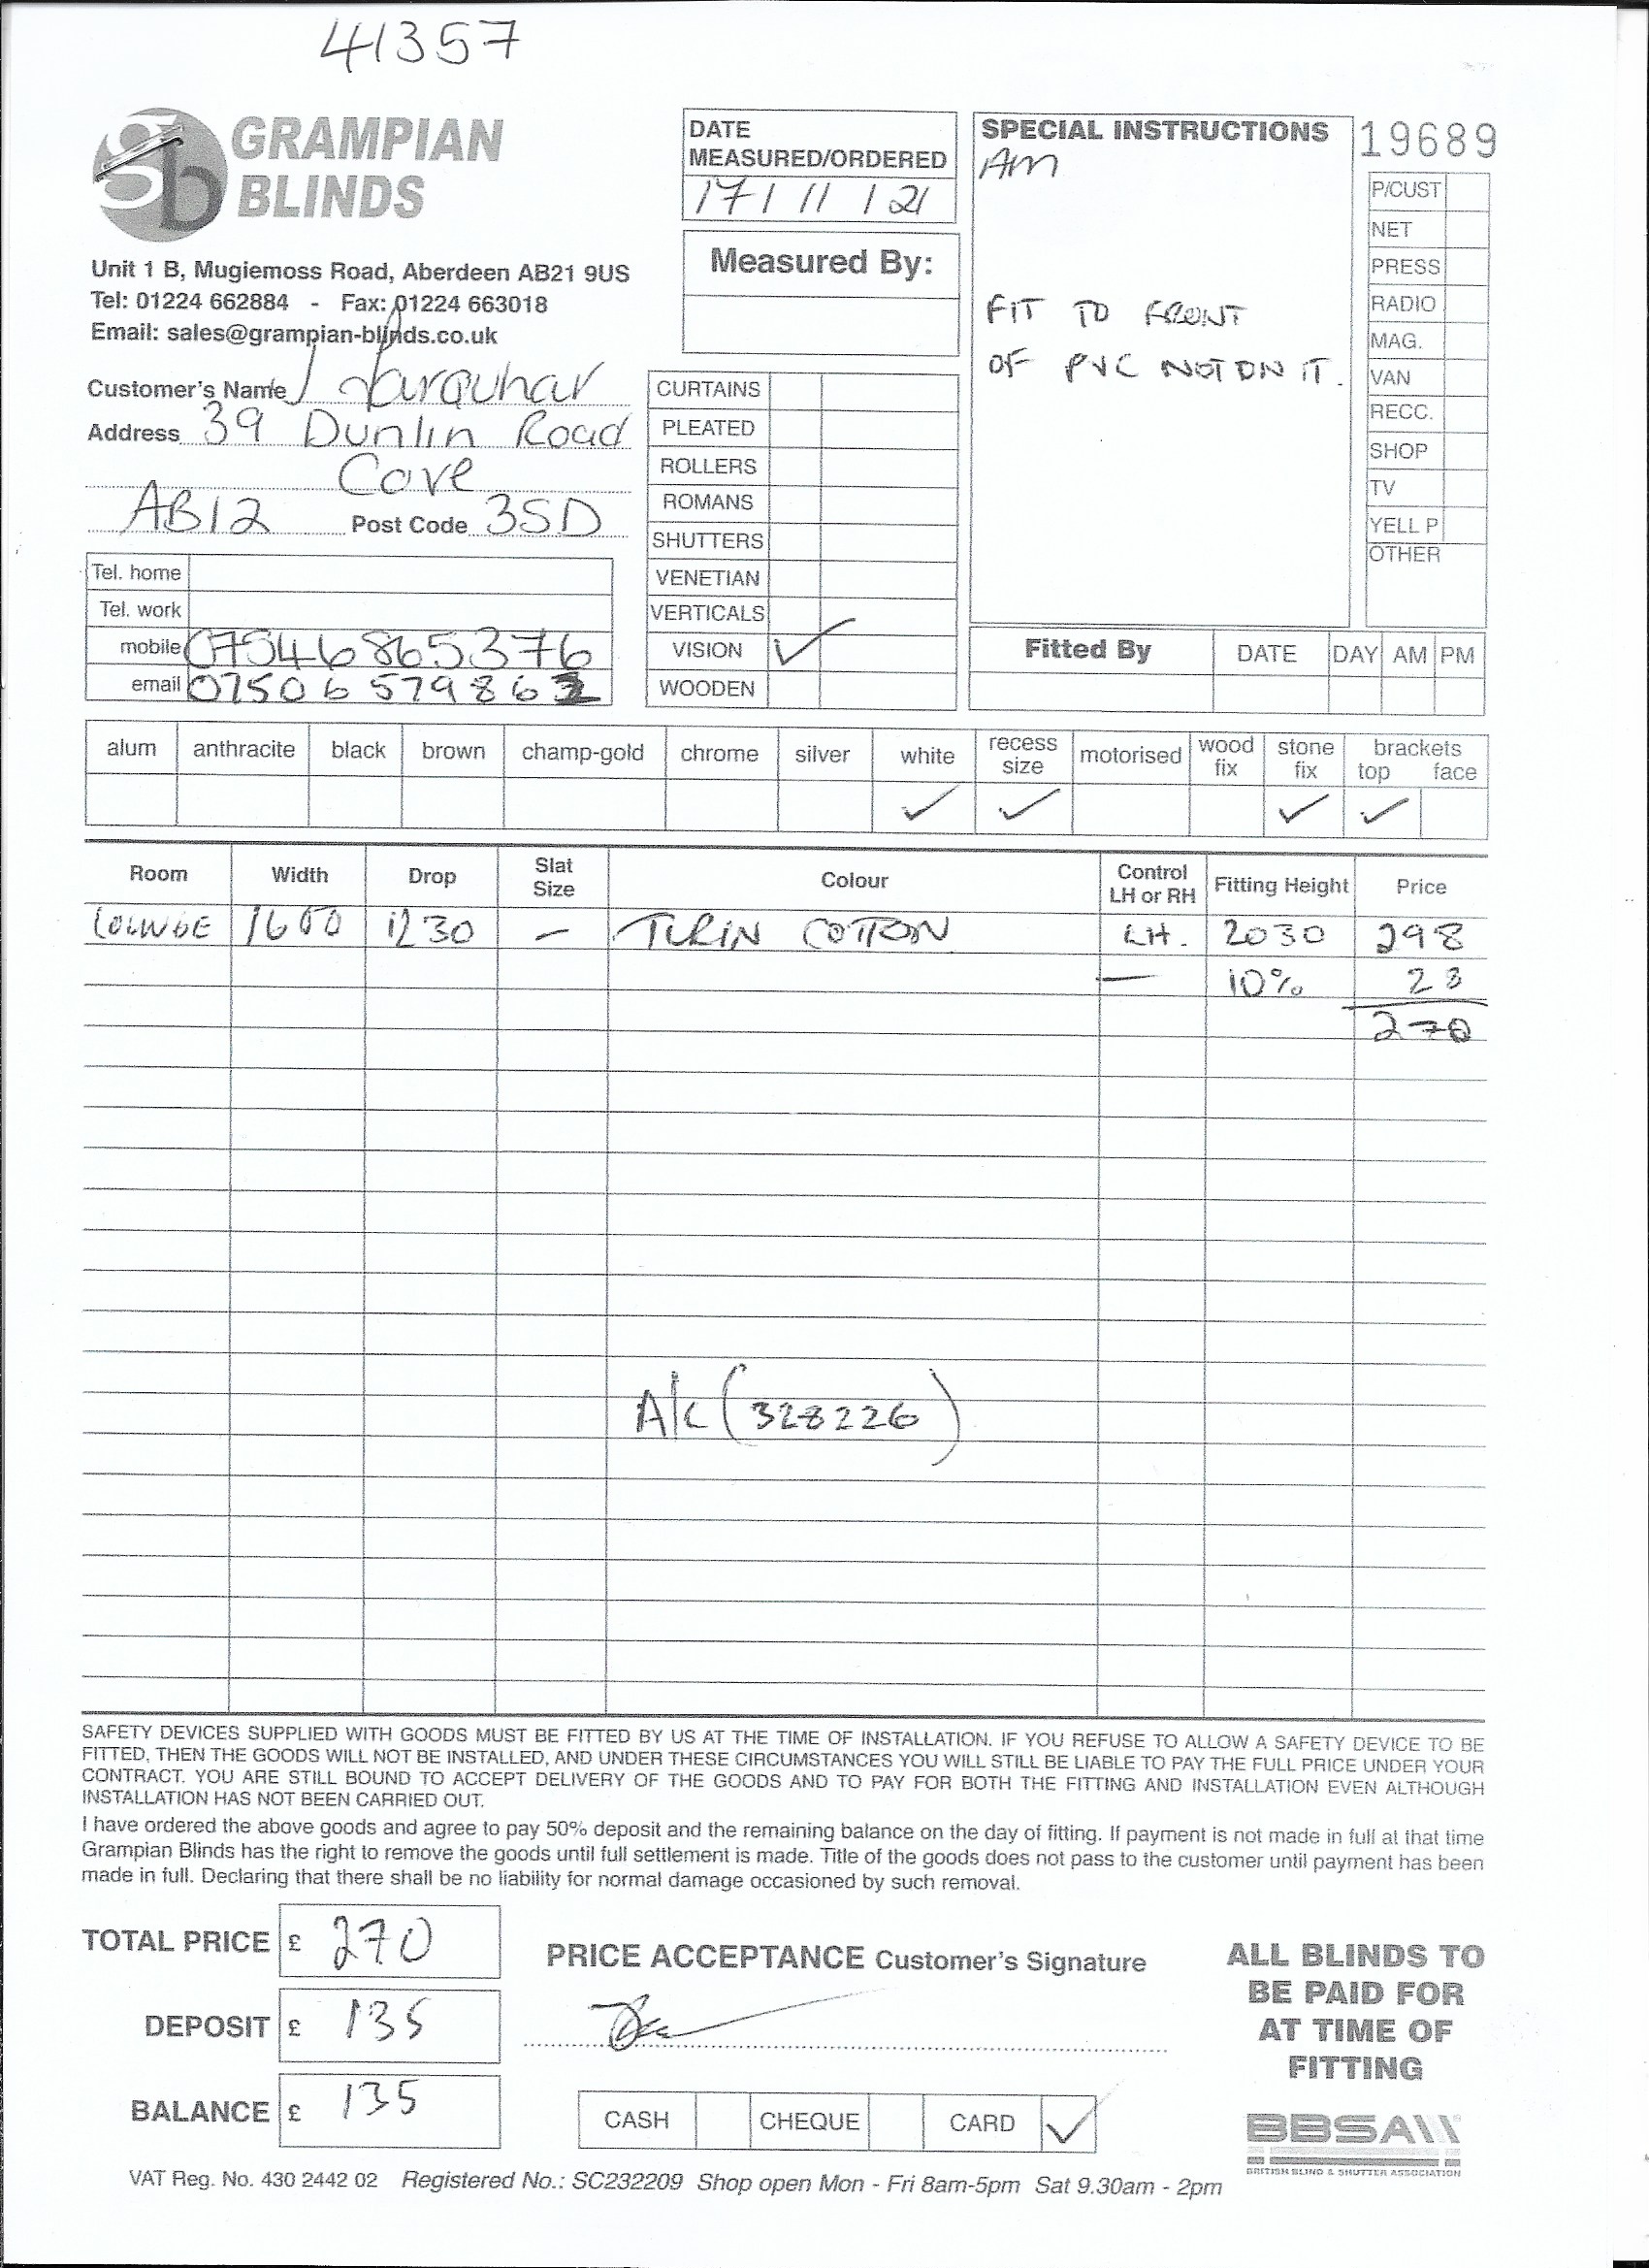 41357
GRAMPIAN
BLINDS
Unit 1 B, Mugiemoss Road, Aberdeen AB21 9US
Tel: 01224 662884 - Fax: 01224 663018
Email: sales@grampian-blinds.co.uk
DATE
MEASURED/ORDERED
17/11/21
Measured By:
SPECIAL INSTRUCTIONS
AM
FIT TO FRONT
OF PVC NOT ON IT.
19689
P/CUST
NET
PRESS
RADIO
MAG.
VAN
RECC.
SHOP
TV
YELL P
OTHER
Customer's Name Farquhar
Address 39 Dunlin Road
Cove
AB12 Post Code 3SD
Tel. home
Tel. work
mobile 07546865376
email 07506579862
CURTAINS
PLEATED
ROLLERS
ROMANS
SHUTTERS
VENETIAN
VERTICALS
VISION ✓
WOODEN
Fitted By DATE DAY AM PM
alum anthracite black brown champ-gold chrome silver white recess size motorised wood fix stone fix brackets top face
✓ ✓ ✓ ✓
Room Width Drop Slat Size Colour Control LH or RH Fitting Height Price
LOUNGE 1600 1230 – TURIN COTTON LH. 2030 298
— 10% 28
270
A/C (328226)
SAFETY DEVICES SUPPLIED WITH GOODS MUST BE FITTED BY US AT THE TIME OF INSTALLATION. IF YOU REFUSE TO ALLOW A SAFETY DEVICE TO BE
FITTED, THEN THE GOODS WILL NOT BE INSTALLED, AND UNDER THESE CIRCUMSTANCES YOU WILL STILL BE LIABLE TO PAY THE FULL PRICE UNDER YOUR
CONTRACT. YOU ARE STILL BOUND TO ACCEPT DELIVERY OF THE GOODS AND TO PAY FOR BOTH THE FITTING AND INSTALLATION EVEN ALTHOUGH
INSTALLATION HAS NOT BEEN CARRIED OUT.
I have ordered the above goods and agree to pay 50% deposit and the remaining balance on the day of fitting. If payment is not made in full at that time
Grampian Blinds has the right to remove the goods until full settlement is made. Title of the goods does not pass to the customer until payment has been
made in full. Declaring that there shall be no liability for normal damage occasioned by such removal.
TOTAL PRICE £ 270
DEPOSIT £ 135
BALANCE £ 135
PRICE ACCEPTANCE Customer's Signature
CASH CHEQUE CARD ✓
ALL BLINDS TO
BE PAID FOR
AT TIME OF
FITTING
BBSA
BRITISH BLIND & SHUTTER ASSOCIATION
VAT Reg. No. 430 2442 02 Registered No.: SC232209 Shop open Mon - Fri 8am-5pm Sat 9.30am - 2pm